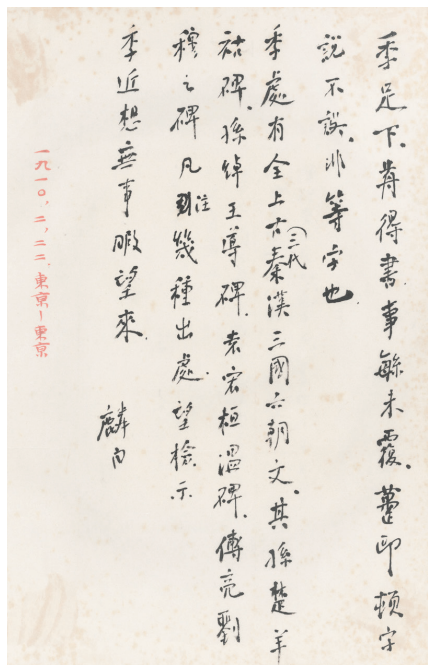 季足下。得書事緐未覆。卽頓字
說不誤，非等字也。
季處有全上古（三代）秦漢三國六朝文，其孫楚羊
祜碑，孫綽王導碑，袁宏桓溫碑，傅亮劉
穆之碑凡注幾種出處，望檢示。
季近想無事暇望來。
麟白
一九一〇，二，二二，東京—東京